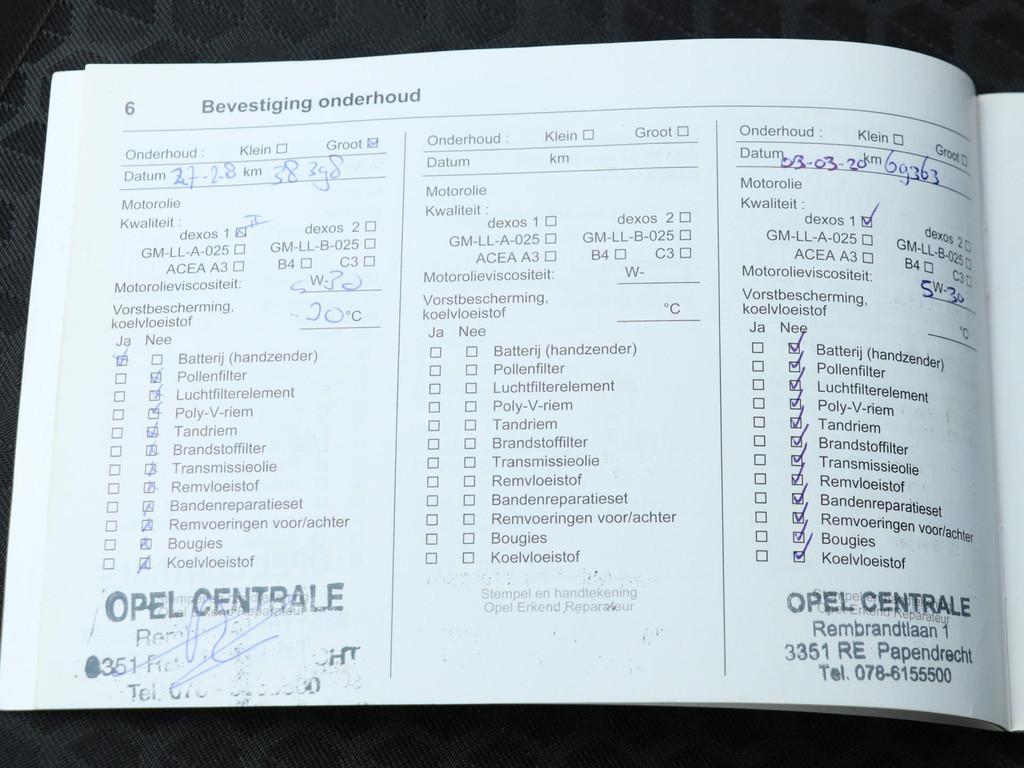 6 Bevestiging onderhoud
Onderhoud : Klein ☐ Groot ☒
Datum 27-2-8 km 38398
Motorolie
Kwaliteit :
dexos 1 ☒ II dexos 2 ☐
GM-LL-A-025 ☐ GM-LL-B-025 ☐
ACEA A3 ☐ B4 ☐ C3 ☐
Motorolieviscositeit: 5W-30
Vorstbescherming,
koelvloeistof -30°C
Ja Nee
☑ ☐ Batterij (handzender)
☐ ☑ Pollenfilter
☐ ☑ Luchtfilterelement
☐ ☑ Poly-V-riem
☐ ☑ Tandriem
☐ ☑ Brandstoffilter
☐ ☑ Transmissieolie
☐ ☑ Remvloeistof
☐ ☑ Bandenreparatieset
☐ ☑ Remvoeringen voor/achter
☐ ☑ Bougies
☐ ☑ Koelvloeistof
OPEL CENTRALE
3351
Tel. 078
Onderhoud : Klein ☐ Groot ☐
Datum km
Motorolie
Kwaliteit :
dexos 1 ☐ dexos 2 ☐
GM-LL-A-025 ☐ GM-LL-B-025 ☐
ACEA A3 ☐ B4 ☐ C3 ☐
Motorolieviscositeit: W-
Vorstbescherming,
koelvloeistof °C
Ja Nee
☐ ☐ Batterij (handzender)
☐ ☐ Pollenfilter
☐ ☐ Luchtfilterelement
☐ ☐ Poly-V-riem
☐ ☐ Tandriem
☐ ☐ Brandstoffilter
☐ ☐ Transmissieolie
☐ ☐ Remvloeistof
☐ ☐ Bandenreparatieset
☐ ☐ Remvoeringen voor/achter
☐ ☐ Bougies
☐ ☐ Koelvloeistof
Stempel en handtekening
Opel Erkend Reparateur
Onderhoud : Klein ☐ Groot ☐
Datum 03-03-20 km 69363
Motorolie
Kwaliteit :
dexos 1 ☑ dexos 2 ☐
GM-LL-A-025 ☐ GM-LL-B-025 ☐
ACEA A3 ☐ B4 ☐ C3 ☐
Motorolieviscositeit: 5W-30
Vorstbescherming,
koelvloeistof °C
Ja Nee
☐ ☑ Batterij (handzender)
☐ ☑ Pollenfilter
☐ ☑ Luchtfilterelement
☐ ☑ Poly-V-riem
☐ ☑ Tandriem
☐ ☑ Brandstoffilter
☐ ☑ Transmissieolie
☐ ☑ Remvloeistof
☐ ☑ Bandenreparatieset
☐ ☑ Remvoeringen voor/achter
☐ ☑ Bougies
☐ ☑ Koelvloeistof
OPEL CENTRALE
Opel Erkend Reparateur
Rembrandtlaan 1
3351 RE Papendrecht
Tel. 078-6155500